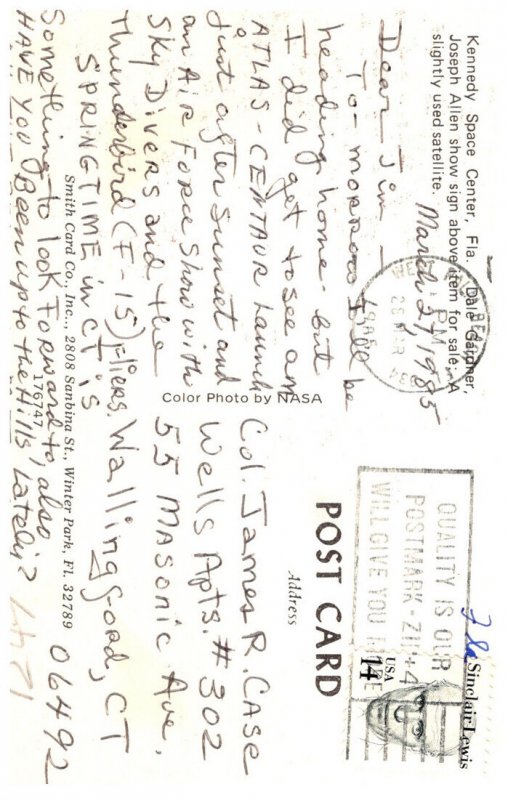 Kennedy Space Center, Fla. Dale Gardner,
Joseph Allen show sign above item for sale. A
slightly used satellite.
March 27, 1985
Dear Jim —
To-morrow I'll be
heading home- but
I did get to see an
ATLAS-CENTAUR Launch
just after Sunset and
an AIR FORCE Show with
Sky Divers and the
Thunderbird (F-15) Fliers.
SPRINGTIME in CT is
Something to look Forward to, also
HAVE YOU BEEN up to the Hills Lately?
Color Photo by NASA
Smith Card Co., Inc., 2808 Sanbina St., Winter Park, Fl. 32789
176147
POST CARD
Address
PM
1985
QUALITY IS OUR
POSTMARK - ZIP+4
WILL GIVE YOU MORE
Sinclair Lewis
USA
14
Fla
Col. James R. CASE
Wells Apts. #302
55 MASONIC Ave.
Wallingford, CT
06492